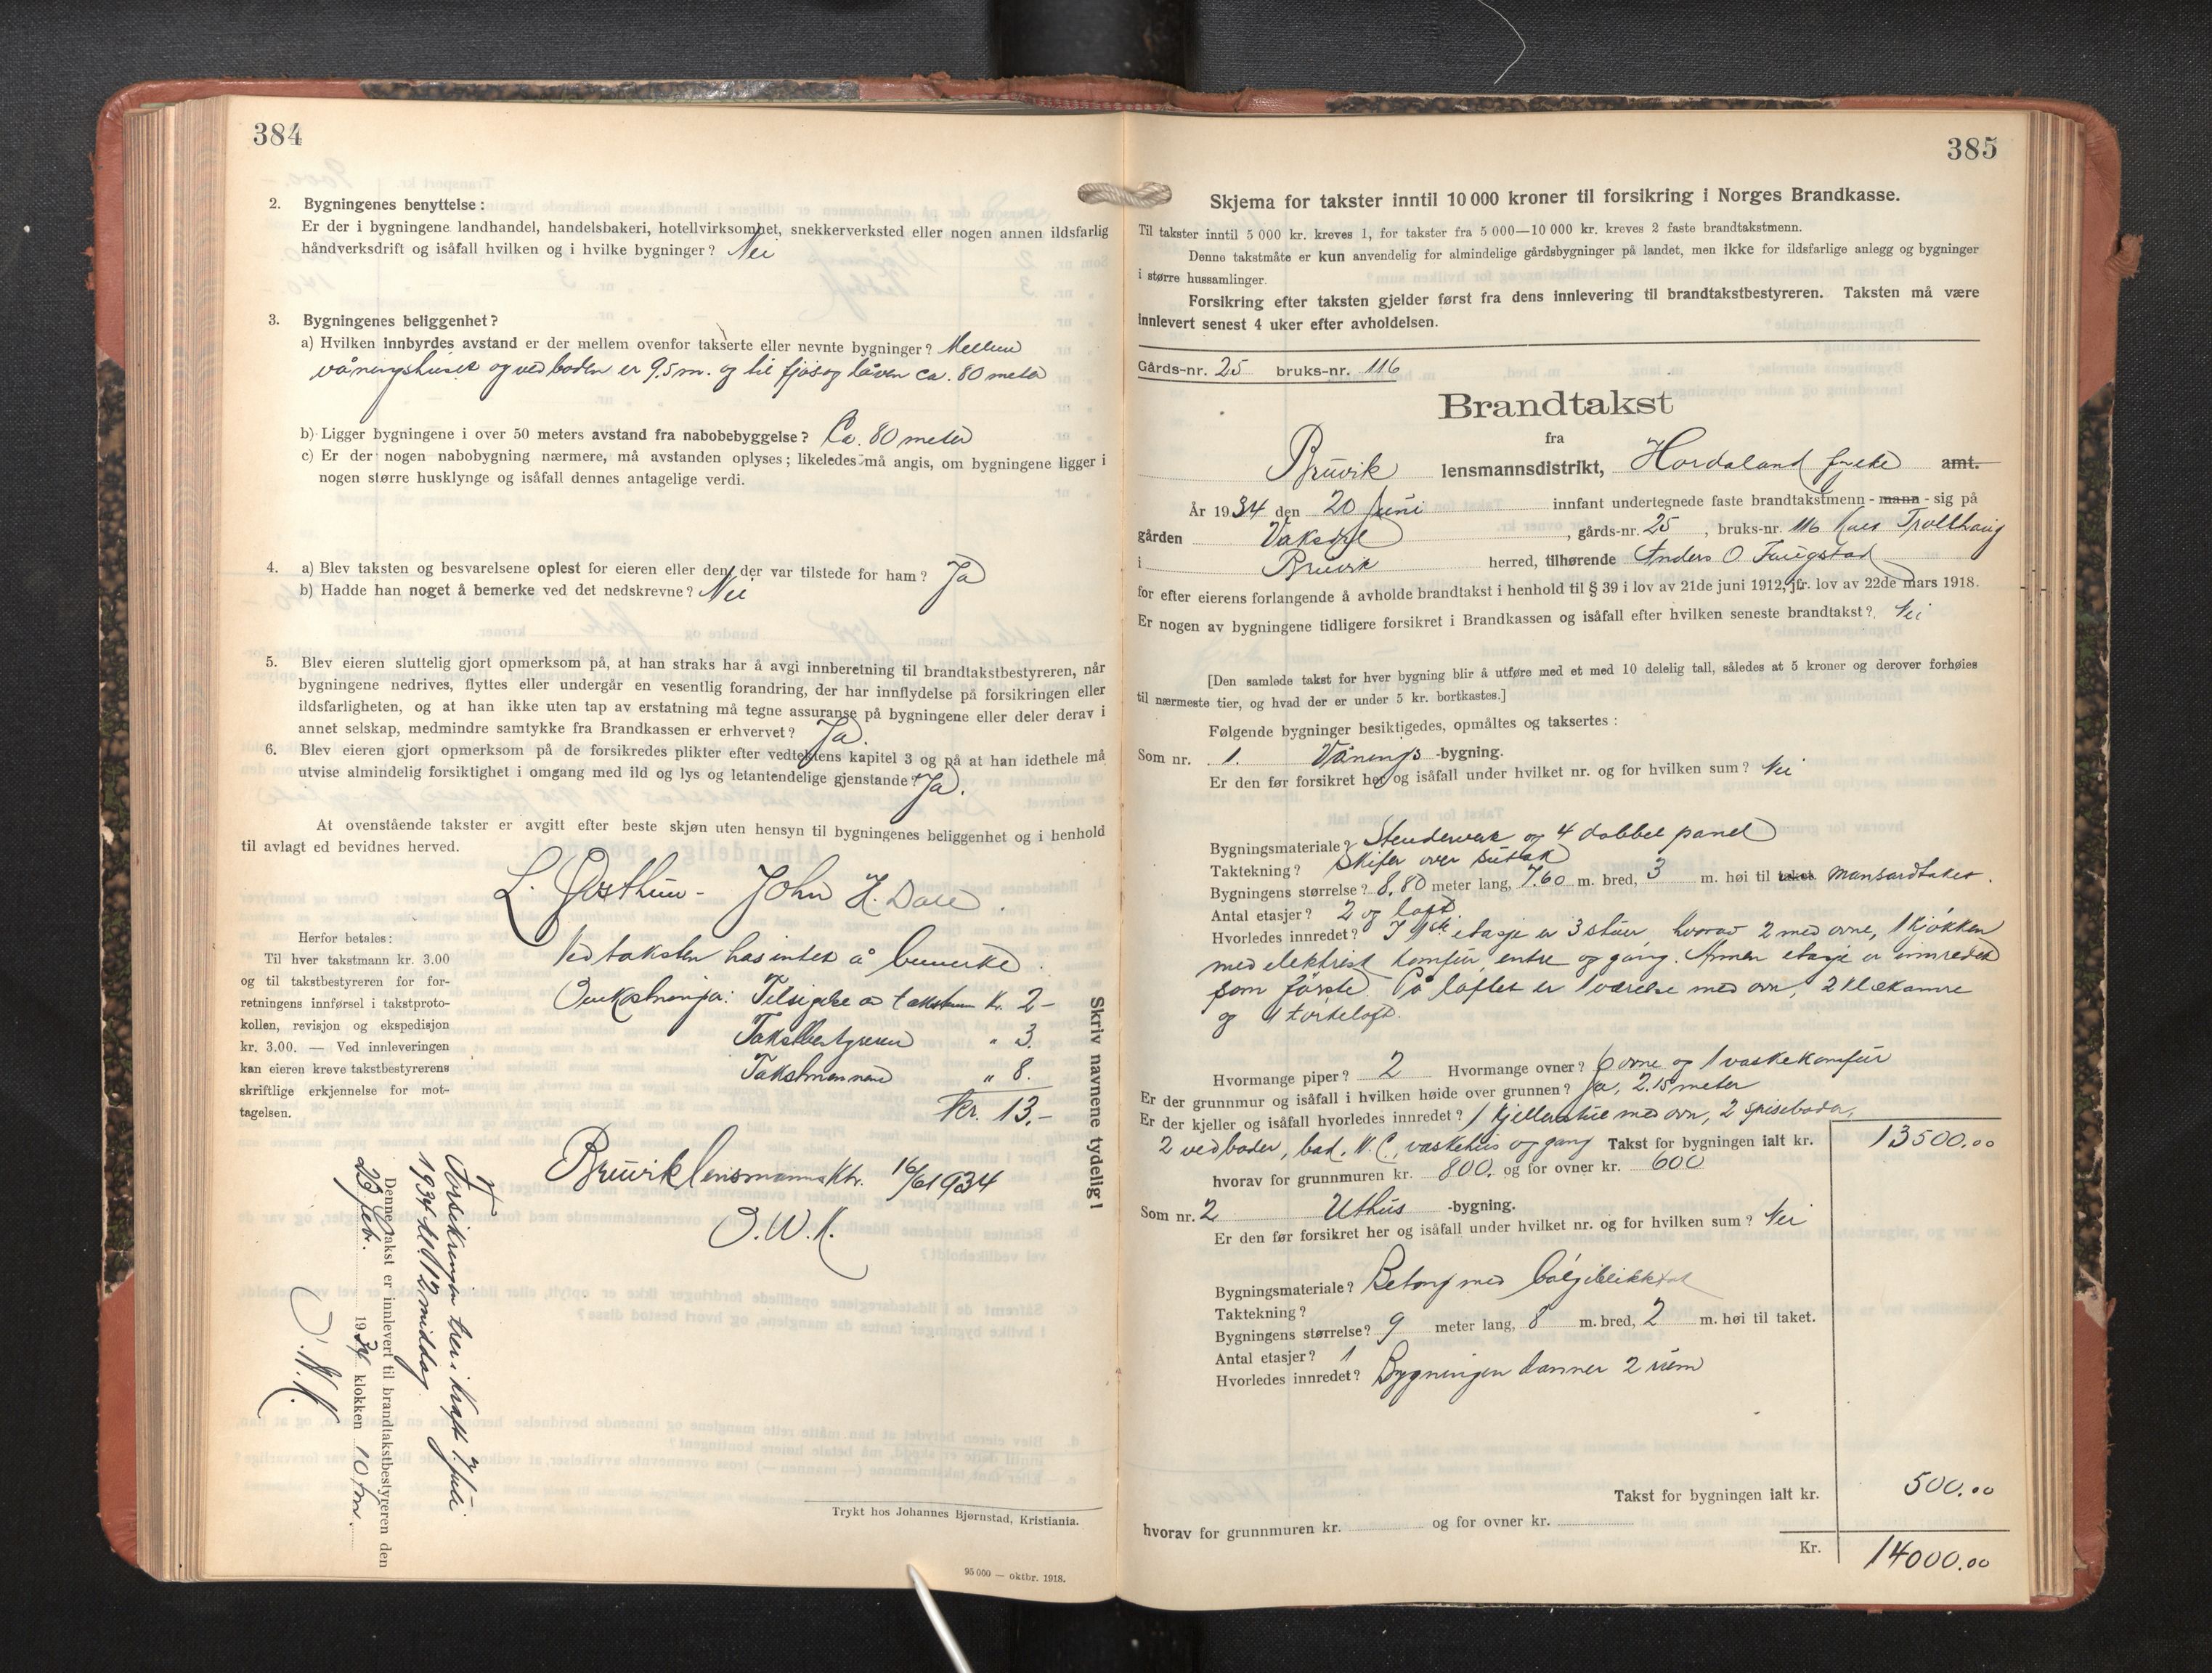 384
2. Bygningenes benyttelse:
Er der i bygningene landhandel, handelsbakeri, hotellvirksomhet, snekkerverksted eller nogen annen ildsfarlig
håndverksdrift og isåfall hvilken og i hvilke bygninger? Nei
3. Bygningenes beliggenhet?
a) Hvilken innbyrdes avstand er der mellem ovenfor takserte eller nevnte bygninger? Mellem
våningshuset og vedboden er 9.5 m. og til fjøs og låven ca. 80 meter
b) Ligger bygningene i over 50 meters avstand fra nabobebyggelse? Ca. 80 meter
c) Er der nogen nabobygning nærmere, må avstanden oplyses; likeledes må angis, om bygningene ligger i
nogen større husklynge og isåfall dennes antagelige verdi.
4. a) Blev taksten og besvarelsene oplest for eieren eller den, der var tilstede for ham? Ja
b) Hadde han noget å bemerke ved det nedskrevne? Nei
5. Blev eieren sluttelig gjort opmerksom på, at han straks har å avgi innberetning til brandtakstbestyreren, når
bygningene nedrives, flyttes eller undergår en vesentlig forandring, der har innflydelse på forsikringen eller
ildsfarligheten, og at han ikke uten tap av erstatning må tegne assuranse på bygningene eller deler derav i
annet selskap, medmindre samtykke fra Brandkassen er erhvervet? Ja.
6. Blev eieren gjort opmerksom på de forsikredes plikter efter vedtektens kapitel 3 og på at han idethele må
utvise almindelig forsiktighet i omgang med ild og lys og letantendelige gjenstande? Ja.
At ovenstående takster er avgitt efter beste skjøn uten hensyn til bygningenes beliggenhet og i henhold
til avlagt ed bevidnes herved.
John H. Dale.
Ved taksten has intet å bemerke.
Herfor betales:
Til hver takstmann kr. 3.00
og til takstbestyreren for for-
retningens innførsel i takstproto-
kollen, revisjon og ekspedisjon
kr. 3.00. — Ved innleveringen
kan eieren kreve takstbestyrerens
skriftlige erkjennelse for mot-
tagelsen.
Omkostninger: Tilsigelse av takstmenn kr. 2-
Takstbestyreren " 3.
Takstmennene " 8.
Kr. 13.-
Bruvik lensmannsktr. 16/6 1934
O. W. K.
Skriv navnene tydelig!
Forsikringen trer i kraft 7. juli
1934 kl. 12 middag.
Denne takst er innlevert til brandtakstbestyreren den
23 febr. 1934 klokken 10 fm.
Trykt hos Johannes Bjørnstad, Kristiania.
95 000 — oktbr. 1918.
385
Skjema for takster inntil 10 000 kroner til forsikring i Norges Brandkasse.
Til takster inntil 5 000 kr. kreves 1, for takster fra 5 000—10 000 kr. kreves 2 faste brandtakstmenn.
Denne takstmåte er kun anvendelig for almindelige gårdsbygninger på landet, men ikke for ildsfarlige anlegg og bygninger
i større hussamlinger.
Forsikring efter taksten gjelder først fra dens innlevering til brandtakstbestyreren. Taksten må være
innlevert senest 4 uker efter avholdelsen.
Gårds-nr. 25 bruks-nr. 116
Brandtakst
fra
Bruvik lensmannsdistrikt, Hordaland fylke amt.
År 1934 den 20 juni innfant undertegnede faste brandtakstmenn - mann - sig på
gården Vaksdal, gårds-nr. 25, bruks-nr. 116 Trollhaug
i Bruvik herred, tilhørende Anders O. Faugstad
for efter eierens forlangende å avholde brandtakst i henhold til § 39 i lov av 21de juni 1912, jfr. lov av 22de mars 1918.
Er nogen av bygningene tidligere forsikret i Brandkassen og isåfall efter hvilken seneste brandtakst? Nei
[Den samlede takst for hver bygning blir å utføre med et med 10 delelig tall, således at 5 kroner og derover forhøies
til nærmeste tier, og hvad der er under 5 kr. bortkastes.]
Følgende bygninger besiktigedes, opmåltes og taksertes:
Som nr. 1. Vånings -bygning.
Er den før forsikret her og isåfall under hvilket nr. og for hvilken sum? Nei
Bygningsmateriale? Stenderverk og 4 dobbel panel
Taktekning? Skifer over sutak
Bygningens størrelse? 8,80 meter lang, 7.60 m. bred, 3 m. høi til taket. mansardtaket.
Antal etasjer? 2 og loft.
Hvorledes innredet? I 1ste etasje er 3 stuer, hvorav 2 med ovne, 1 kjøkken
med elektrisk komfur, entre og gang. Annen etasje er innredet
som første. På loftet er 1 værelse med ovn, 2 klækamre
og 1 tørkeloft.
Hvormange piper? 2 Hvormange ovner? 6 ovne og 1 vaskekomfur
Er der grunnmur og isåfall i hvilken høide over grunnen? Ja, 2.15 meter
Er der kjeller og isåfall hvorledes innredet? 1 kjellerstue med ovn, 2 spiseboder,
2 vedboder, bad, W.C., vaskehus og gang Takst for bygningen ialt kr. 13500.00
hvorav for grunnmuren kr. 800. og for ovner kr. 600
Som nr. 2 Uthus -bygning.
Er den før forsikret her og isåfall under hvilket nr. og for hvilken sum? Nei
Bygningsmateriale? Betong med bølgeblikktak
Taktekning?
Bygningens størrelse? 9 meter lang, 8 m. bred, 2 m. høi til taket.
Antal etasjer? 1
Hvorledes innredet? Bygningen danner 2 rum
Takst for bygningen ialt kr. 500.00
hvorav for grunnmuren kr. og for ovner kr.
Kr. 14000.00